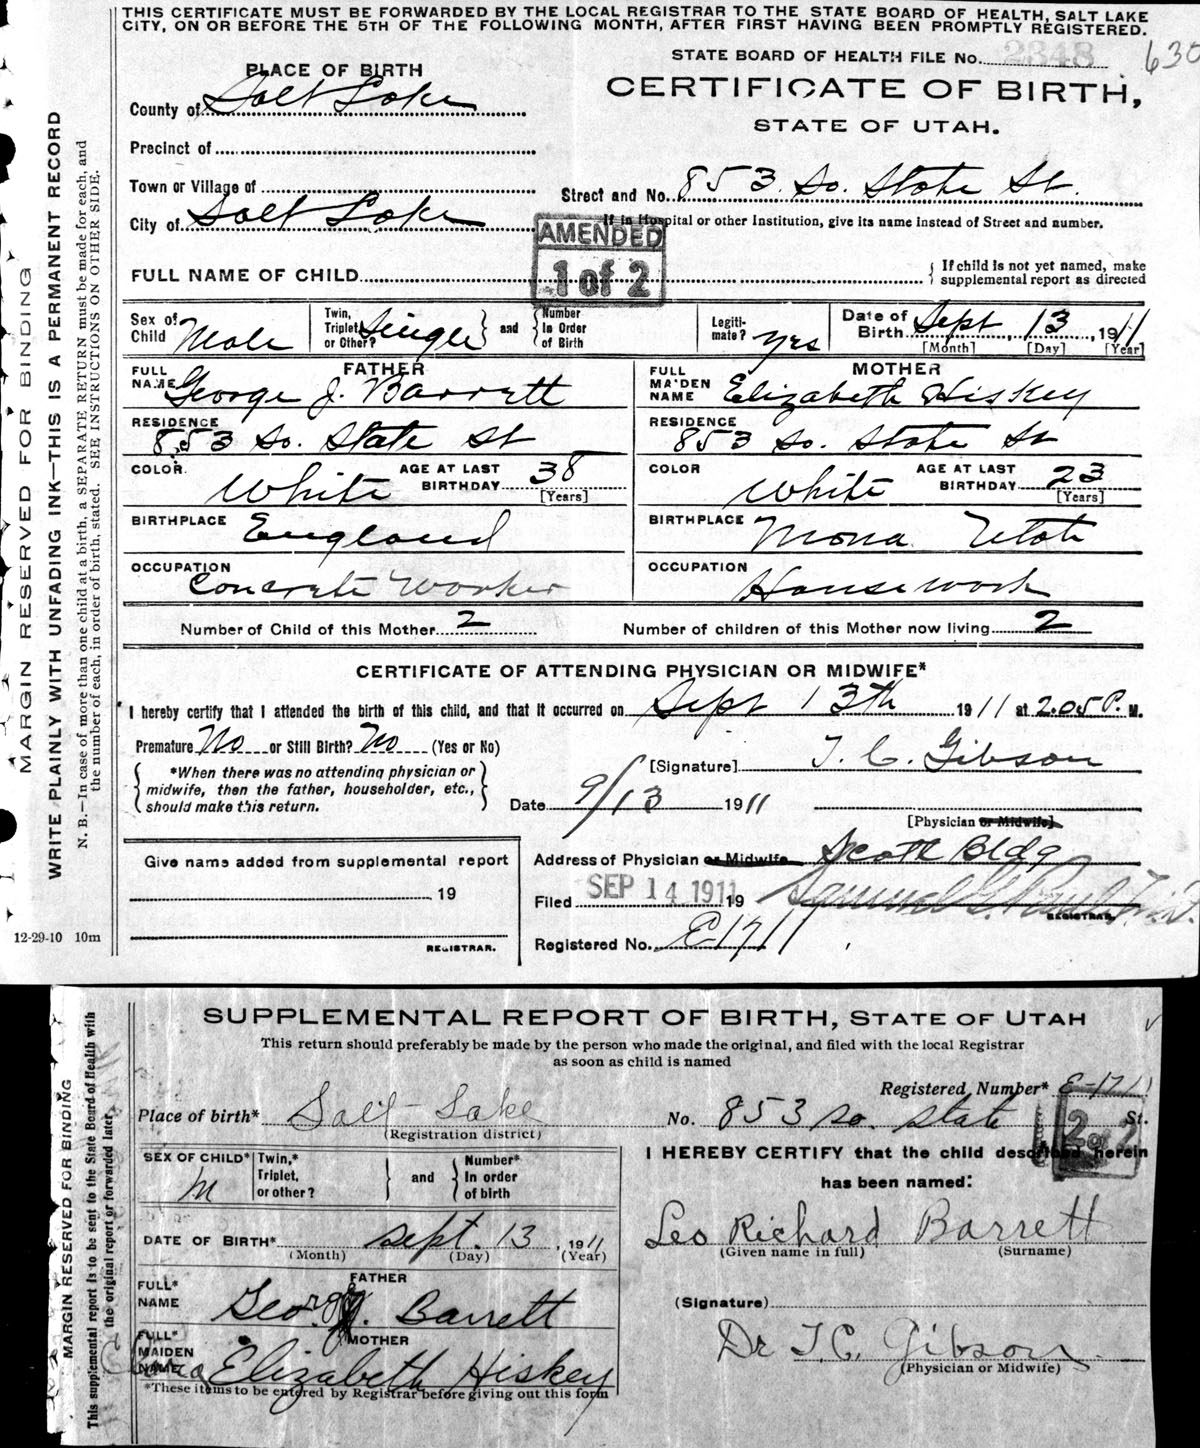 THIS CERTIFICATE MUST BE FORWARDED BY THE LOCAL REGISTRAR TO THE STATE BOARD OF HEALTH, SALT LAKE
CITY, ON OR BEFORE THE 5TH OF THE FOLLOWING MONTH, AFTER FIRST HAVING BEEN PROMPTLY REGISTERED.
STATE BOARD OF HEALTH FILE No. 2348 630
PLACE OF BIRTH
CERTIFICATE OF BIRTH,
STATE OF UTAH.
County of Salt Lake
Precinct of
Town or Village of
Street and No. 853 So. State St.
City of Salt Lake
If in Hospital or other Institution, give its name instead of Street and number.
AMENDED
1 of 2
FULL NAME OF CHILD
If child is not yet named, make
supplemental report as directed
Sex of Child Male
Twin, Triplet, or Other? Single
and
Number In Order of Birth
Legiti-mate? yes
Date of Birth Sept 13, 1911
[Month] [Day] [Year]
FATHER
FULL NAME George J. Barrett
RESIDENCE 853 So. State St
COLOR White AGE AT LAST BIRTHDAY 38 [Years]
BIRTHPLACE England
OCCUPATION Concrete Worker
MOTHER
FULL MAIDEN NAME Elizabeth Hiskey
RESIDENCE 853 So. State St
COLOR White AGE AT LAST BIRTHDAY 23 [Years]
BIRTHPLACE Mona Utah
OCCUPATION Housework
Number of Child of this Mother 2 Number of children of this Mother now living 2
CERTIFICATE OF ATTENDING PHYSICIAN OR MIDWIFE*
I hereby certify that I attended the birth of this child, and that it occurred on Sept 13th 1911 at 2.05 P. M.
Premature No or Still Birth? No (Yes or No)
*When there was no attending physician or
midwife, then the father, householder, etc.,
should make this return.
[Signature] T. C. Gibson
Date 9/13 1911
[Physician or Midwife]
Give name added from supplemental report
19
REGISTRAR.
Address of Physician or Midwife Scott Bldg
Filed SEP 14 1911 19
REGISTRAR
Registered No. E1711
12-29-10 10m
MARGIN RESERVED FOR BINDING
WRITE PLAINLY WITH UNFADING INK—THIS IS A PERMANENT RECORD
N. B.—In case of more than one child at a birth, a SEPARATE RETURN must be made for each, and
the number of each, in order of birth, stated. SEE INSTRUCTIONS ON OTHER SIDE.
SUPPLEMENTAL REPORT OF BIRTH, STATE OF UTAH
This return should preferably be made by the person who made the original, and filed with the local Registrar
as soon as child is named
Registered Number* E-1711
Place of birth* Salt Lake
(Registration district)
No. 853 So. State St.
2 of 2
SEX OF CHILD* M
Twin,* Triplet, or other?
and
Number* In order of birth
I HEREBY CERTIFY that the child described herein
has been named:
DATE OF BIRTH* Sept. 13, 1911
(Month) (Day) (Year)
Leo Richard Barrett
(Given name in full) (Surname)
FATHER
FULL* NAME George J. Barrett
(Signature)
MOTHER
FULL* MAIDEN NAME Elizabeth Hiskey
Dr T. C. Gibson
(Physician or Midwife)
*These items to be entered by Registrar before giving out this form
MARGIN RESERVED FOR BINDING
This supplemental report is to be sent to the State Board of Health with
the original report or forwarded later.